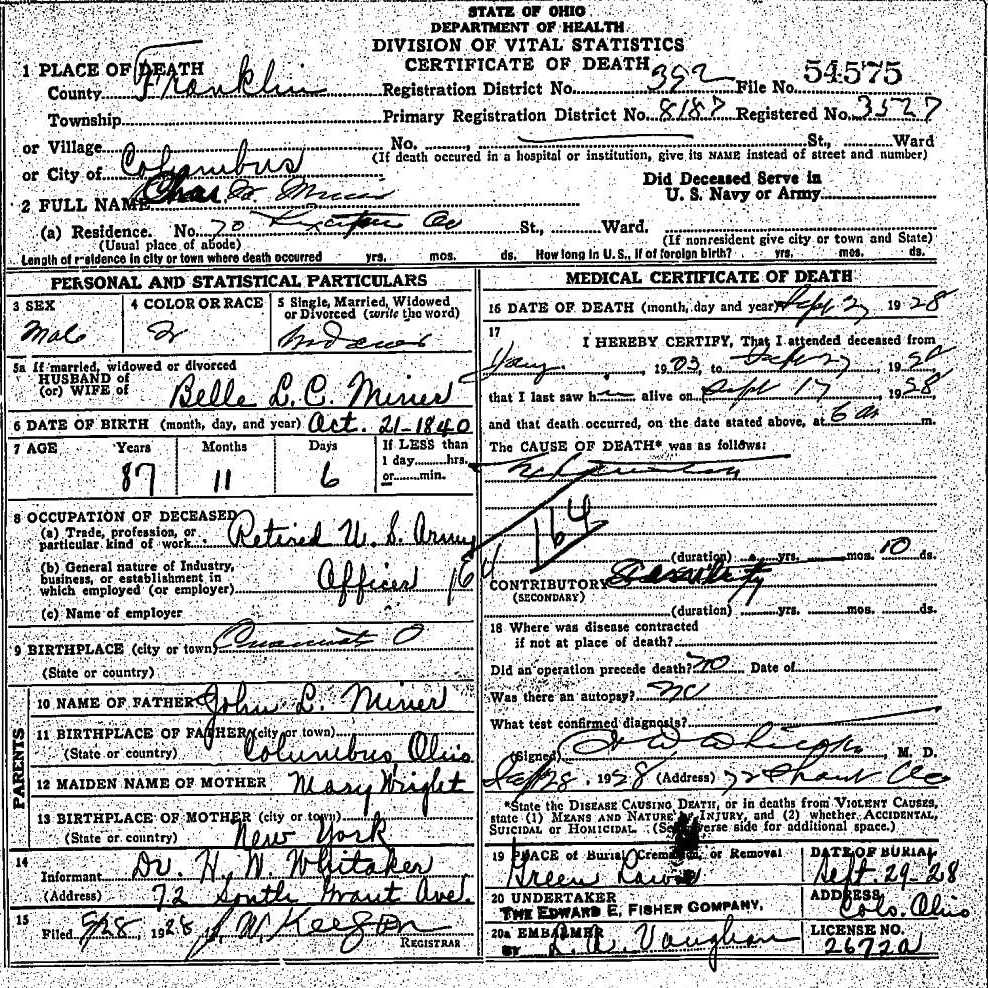 STATE OF OHIO
DEPARTMENT OF HEALTH
DIVISION OF VITAL STATISTICS
CERTIFICATE OF DEATH
1 PLACE OF DEATH
County Franklin Registration District No. 392 File No. 54575
Township Primary Registration District No. 8187 Registered No. 3527
or Village No. St., Ward
(If death occured in a hospital or institution, give its NAME instead of street and number)
or City of Columbus
Did Deceased Serve in
U. S. Navy or Army
2 FULL NAME Chas. W. Miner
(a) Residence. No. 70 St., Ward.
(Usual place of abode) (If nonresident give city or town and State)
Length of residence in city or town where death occurred yrs. mos. ds. How long in U. S., if of foreign birth? yrs. mos. ds.
PERSONAL AND STATISTICAL PARTICULARS
3 SEX 4 COLOR OR RACE 5 Single, Married, Widowed
or Divorced (write the word)
Male
5a If married, widowed or divorced
HUSBAND of
(or) WIFE of Belle L. C. Miner
6 DATE OF BIRTH (month, day, and year) Oct. 21-1840
7 AGE Years Months Days If LESS than
1 day hrs.
or min.
87 11 6
8 OCCUPATION OF DECEASED
(a) Trade, profession, or
particular kind of work Retired U. S. Army
(b) General nature of Industry,
business, or establishment in
which employed (or employer) Officer 164
(c) Name of employer
9 BIRTHPLACE (city or town) Cincinnati O
(State or country)
PARENTS
10 NAME OF FATHER John L. Miner
11 BIRTHPLACE OF FATHER (city or town)
(State or country) Columbus, Ohio
12 MAIDEN NAME OF MOTHER Mary Wright
13 BIRTHPLACE OF MOTHER (city or town)
(State or country) New York
14
Informant Dr. H. W. Whitaker
(Address) 72 South Grant Ave.
15
Filed 9/28, 1928 J. W. Keegan
REGISTRAR
MEDICAL CERTIFICATE OF DEATH
16 DATE OF DEATH (month, day and year) Sept 27 1928
17
I HEREBY CERTIFY, That I attended deceased from
, 1903, to Sept 27, 1928
that I last saw him alive on Sept 17, 1928,
and that death occurred, on the date stated above, at 6 a m.
The CAUSE OF DEATH* was as follows:
164
(duration) yrs. mos. 10 ds.
CONTRIBUTORY Senility
(SECONDARY)
(duration) yrs. mos. ds.
18 Where was disease contracted
if not at place of death?
Did an operation precede death? no Date of
Was there an autopsy? no
What test confirmed diagnosis?
(Signed) H W Whitaker, M. D.
Sept 28, 1928 (Address) 72 S Grant Ave
*State the DISEASE CAUSING DEATH, or in deaths from VIOLENT CAUSES,
state (1) MEANS AND NATURE OF INJURY, and (2) whether ACCIDENTAL,
SUICIDAL or HOMICIDAL. (See reverse side for additional space.)
19 PLACE of Burial, Cremation, or Removal DATE OF BURIAL
Green Lawn Sept. 29-28
20 UNDERTAKER ADDRESS
THE EDWARD E. FISHER COMPANY, Cols. Ohio
20a EMBALMER LICENSE NO.
BY L. A. Vaughan 2672a